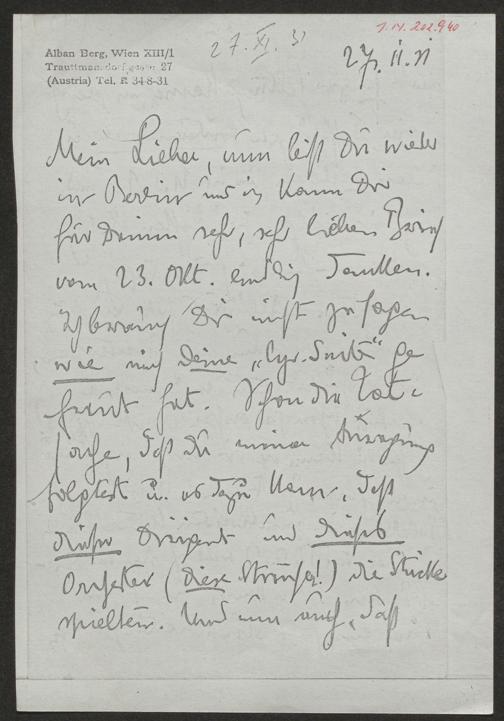 1.N. 202.940
27. XI. 31
27. 11. 31
Alban Berg, Wien XIII/1
Trauttmansdorffgasse 27
(Austria) Tel. R 34-8-31
Mein Lieber, nun bist Du wieder
in Berlin und ich kann Dir
für Deinen sehr, sehr lieben Brief
vom 23. Okt. endlich danken.
Ich brauch Dir nicht zu sagen
wie mich deine „lyr. Suite" ge
freut hat. Schon die Tat-
sache, daß Du meiner Anregung
folgtest u. es dazu kam, daß
dieser Dirigent und dieses
Orchester (diese Streicher!) die Stücke
spielten. Und nun auch, daß